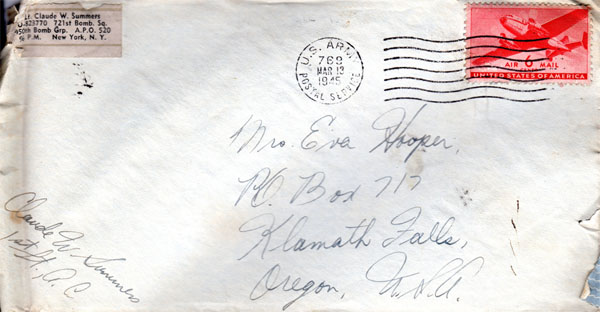 Lt. Claude W. Summers
O-823770 721st Bomb. Sq.
450th Bomb Grp. A.P.O. 520
% P.M. New York, N. Y.
U.S. ARMY
768
MAR 13
1945
POSTAL SERVICE
6
AIR MAIL
UNITED STATES OF AMERICA
Mrs. Eva Hooper,
P.O. Box 717
Klamath Falls,
Oregon, U.S.A.
Claude W Summers
1st Lt, A.C